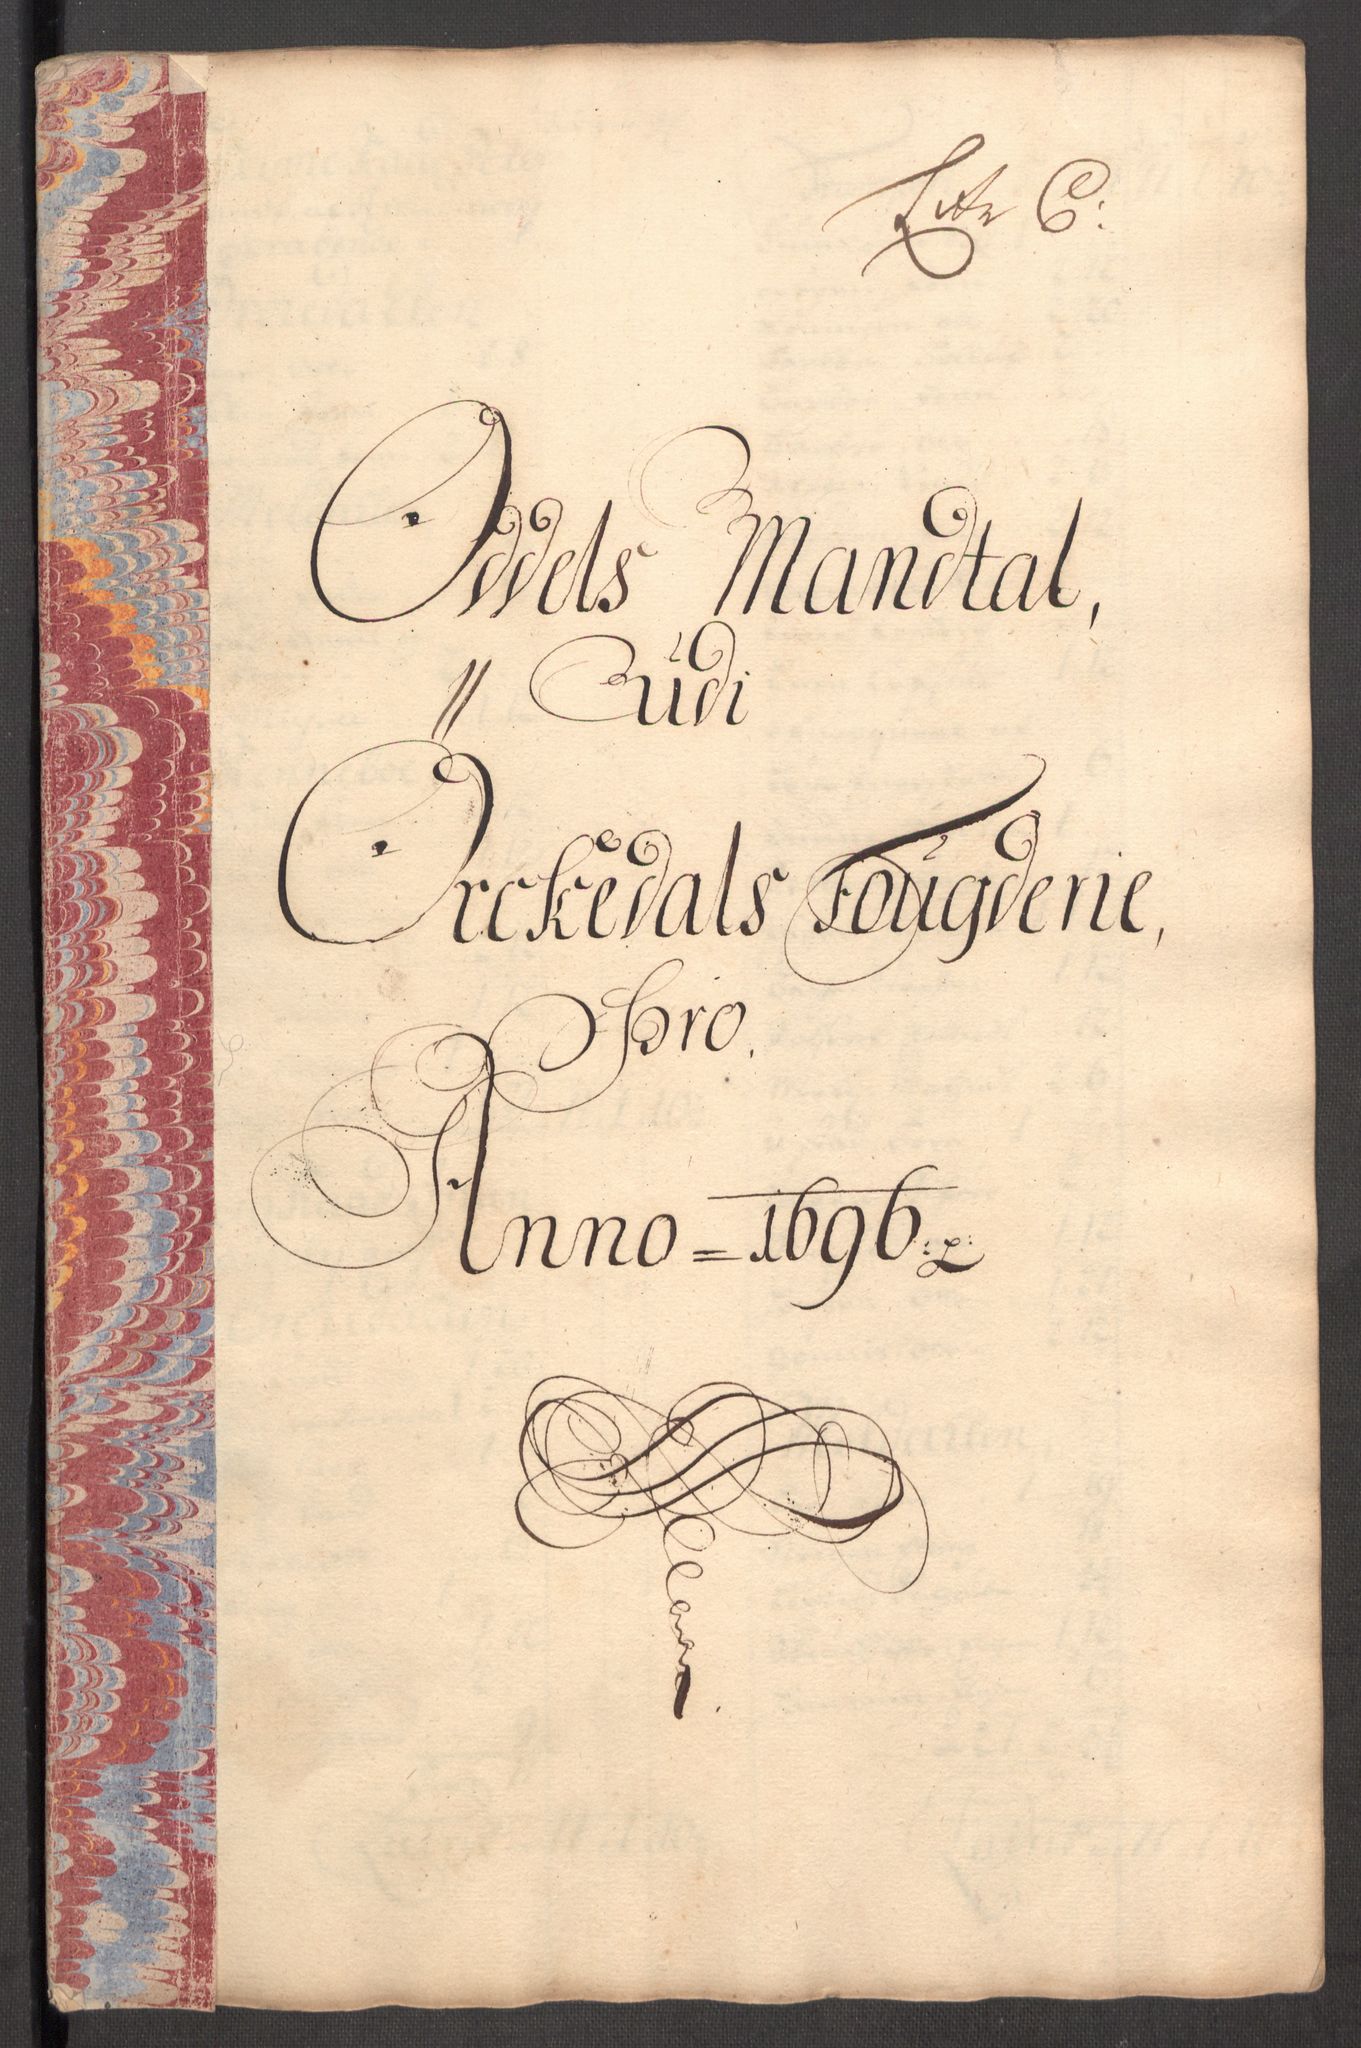 Litr C:
Oddels Mandtal,
Udi
Orckedals Fougderie,
Pro.
Anno = 1696